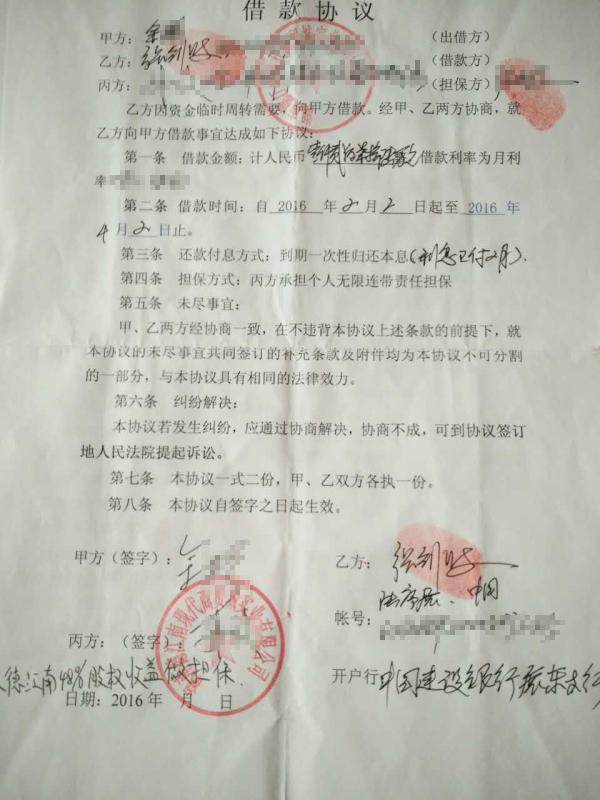 借款协议
甲方：（出借方）
乙方：（借款方）
丙方：（担保方）
乙方因资金临时周转需要，向甲方借款。经甲、乙两方协商，就
乙方向甲方借款事宜达成如下协议：
第一条 借款金额：计人民币 借款利率为月利
率
第二条 借款时间：自 2016 年2月2日起至 2016 年
4月2日止。
第三条 还款付息方式：到期一次性归还本息(利息已付2月).
第四条 担保方式：丙方承担个人无限连带责任担保
第五条 未尽事宜：
甲、乙两方经协商一致，在不违背本协议上述条款的前提下，就
本协议的未尽事宜共同签订的补充条款及附件均为本协议不可分割
的一部分，与本协议具有相同的法律效力。
第六条 纠纷解决：
本协议若发生纠纷，应通过协商解决，协商不成，可到协议签订
地人民法院提起诉讼。
第七条 本协议一式二份，甲、乙双方各执一份。
第八条 本协议自签字之日起生效。
甲方（签字）：
乙方：
帐号：
丙方：（签字）：
江南现代商 实业有限公司
德江南48%股权收益做担保
开户行中国建设银行振东支行
日期：2016年 月 日